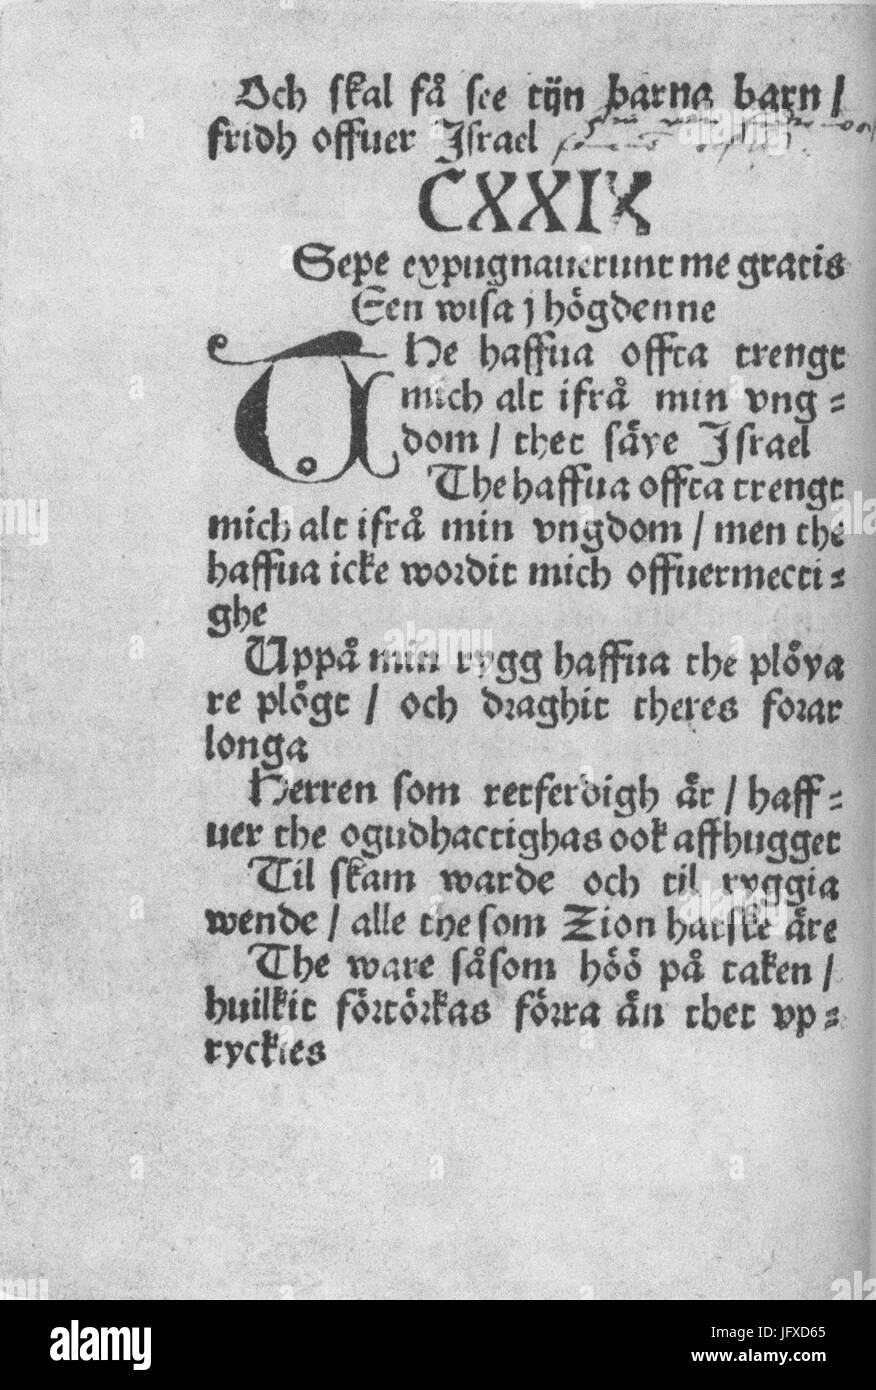 Och skal få see tijn barna barn /
fridh offuer Israel
CXXIX
Sepe expugnauerunt me gratis
Een wisa j högdenne
THe haffua offta trengt
mich alt ifrå min vng=
dom / thet säye Israel
The haffua offta trengt
mich alt ifrå min vngdom / men the
haffua icke wordit mich offuermecti=
ghe
Uppå min rygg haffua the plöya
re plögt / och draghit theres forar
longa
Herren som retferdigh är / haff=
uer the ogudhactighas ook affhugget
Til skam warde och til ryggia
wende / alle the som Zion hatske äre
The ware såsom höö på taken /
huilkit förtörkas förra än thet vp=
ryckies
alamy
Image ID: JFXD65
www.alamy.com